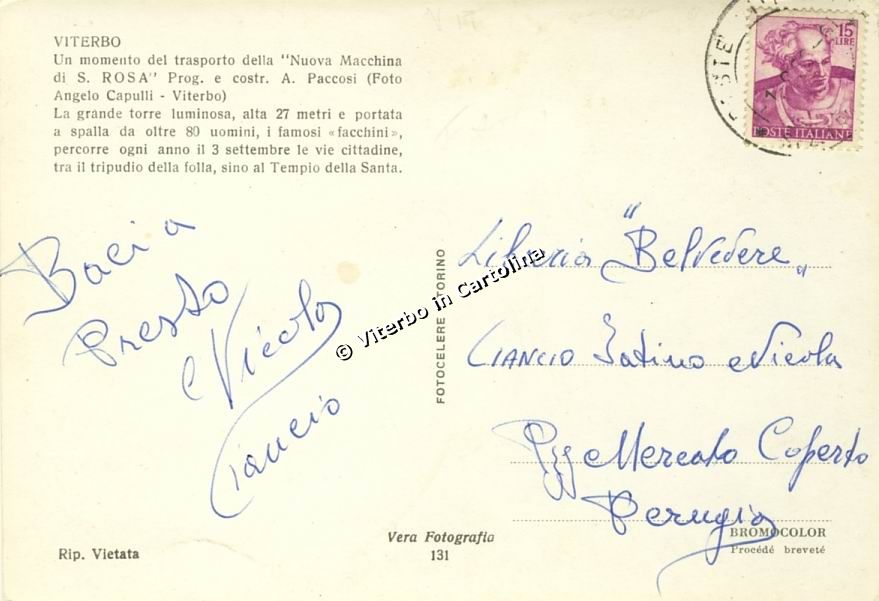 VITERBO
Un momento del trasporto della "Nuova Macchina
di S. ROSA" Prog. e costr. A. Paccosi (Foto
Angelo Capulli - Viterbo)
La grande torre luminosa, alta 27 metri e portata
a spalla da oltre 80 uomini, i famosi «facchini»,
percorre ogni anno il 3 settembre le vie cittadine,
tra il tripudio della folla, sino al Tempio della Santa.
15
LIRE
POSTE ITALIANE
Bacia
Presto
Nicola
Ciancio
© Viterbo in Cartolina
FOTOCELERE TORINO
Libreria "Belvedere"
CIANCIO Nicola
Mercato Coperto
Perugia
BROMOCOLOR
Procédé breveté
Vera Fotografia
131
Rip. Vietata